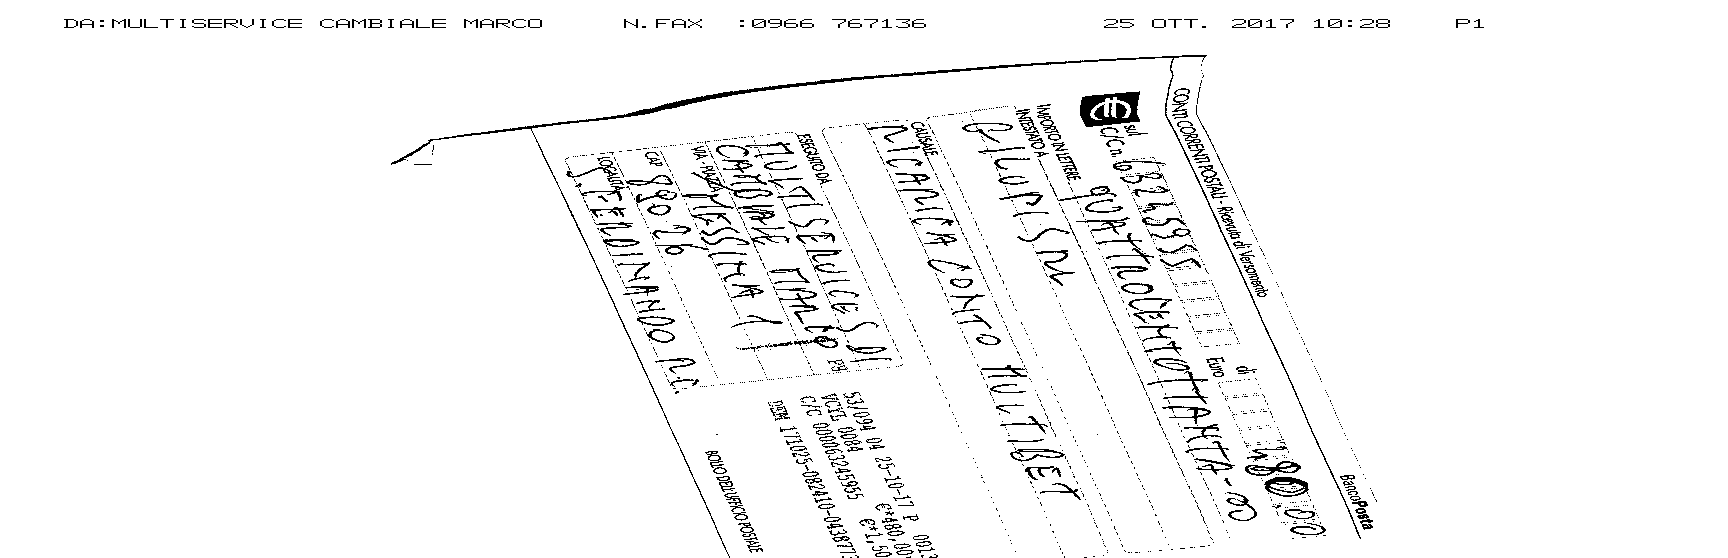 DA:MULTISERVICE CAMBIALE MARCO N.FAX :0966 767136 25 OTT. 2017 10:28 P1
CONTI CORRENTI POSTALI - Ricevuta di Versamento
BancoPosta
sul
C/C n. 63245955 di Euro 480,00
IMPORTO IN LETTERE QUATTROCENTOTTANTA-00
INTESTATO A
GILUPI SRL
CAUSALE
RICARICA CONTO MULTIBET
ESEGUITO DA
MULTISERVICES DI
CAMBIALE MARCO
VIA - PIAZZA MESSINA 1
CAP 89026
LOCALITÀ S. FERDINANDO RC
53/094 04 25-10-17 P
VCYL 0084 €*480,00
C/C 000063245955 €*1,50
171025-082410-0438
BOLLO DELL'UFFICIO POSTALE